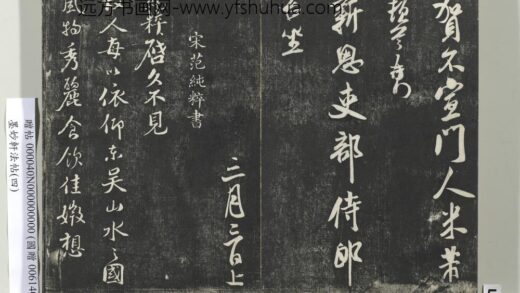 远方书画网--www.yfshuhua.com
賀不宣門人米芾
頓首
新恩吏部侍郎
台坐
三月二日上
宋范純粹書
純粹啓久不見
人每以依仰東吳山水之國
風物秀麗食飲佳嫩想
贈帖 000040N000000000 (國贈 00614
墨妙軒法帖(四)